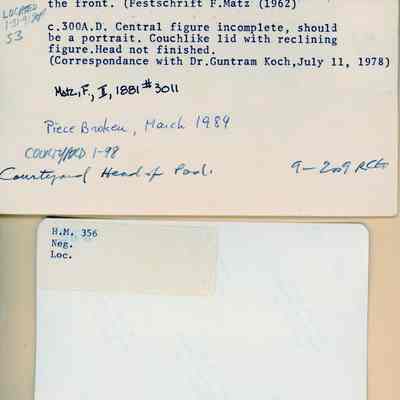 the front. (Festschrift F.Matz (1962)
LOCATED
53
c.300A.D. Central figure incomplete, should
be a portrait. Couchlike lid with reclining
figure.Head not finished.
(Correspondance with Dr.Guntram Koch,July 11, 1978)
Matz, F., II, 1881 #3011
Piece Broken, March 1989
COURTYARD 1-98
Courtyard Head of Pool.
9-2009 RCG
H.M. 356
Neg.
Loc.